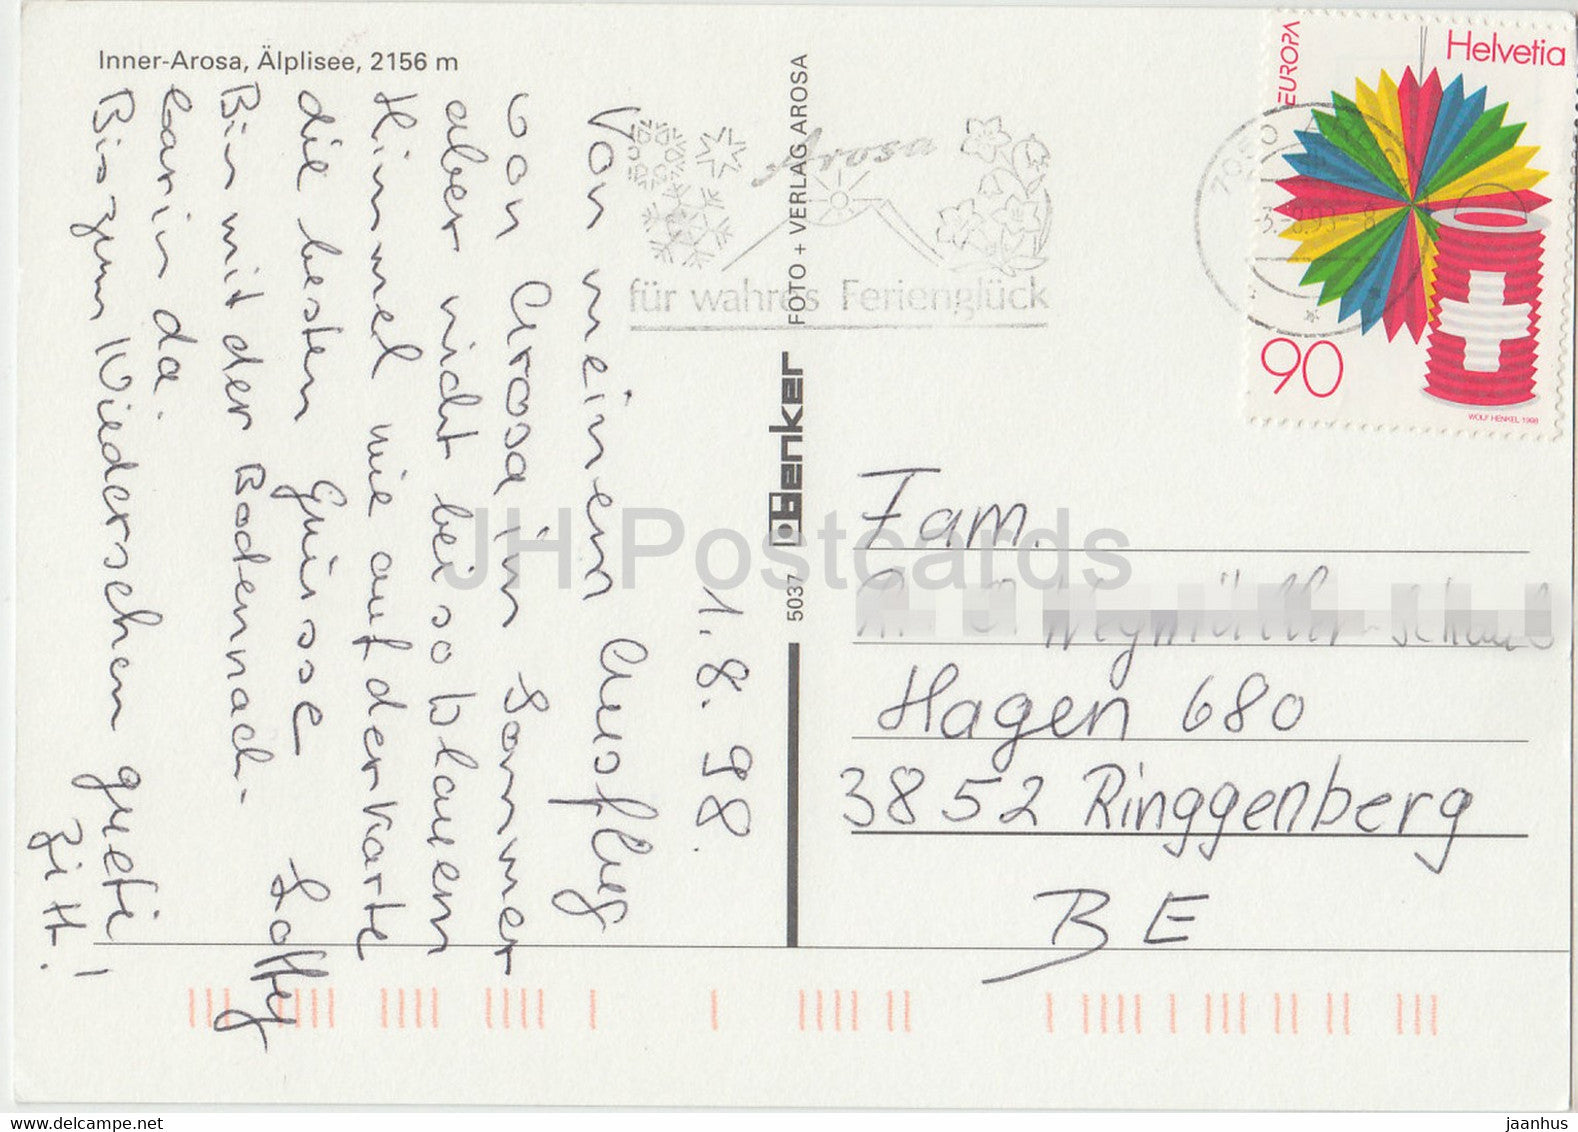 Inner-Arosa, Älplisee, 2156 m
1. 8. 98.
Von meinem Ausflug
von Arosa im Sommer
aber nicht bei so blauem
Himmel wie auf der Karte
die besten Grüsse Lotty
Bin mit der Bodennach-
barin da.
Bis zum Wiedersehen gueti
Zitt!
5037 Benker FOTO + VERLAG AROSA
Arosa
für wahres Ferienglück
EUROPA
Helvetia
90
WOLF HENKEL 1998
Fam.
Hagen 680
3852 Ringgenberg
BE
JH Postcards
delcampe.net
jaanhus